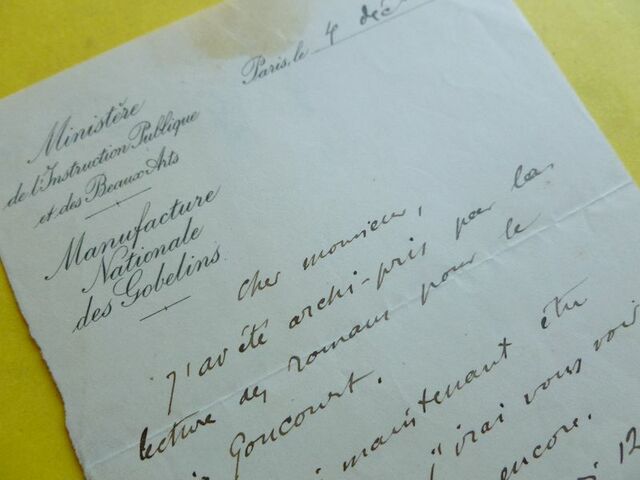 Paris, le 4 déc
Ministère
de l'Instruction Publique
et des Beaux Arts
Manufacture
Nationale
des Gobelins
Cher monsieur,
J'ai été archi-pris par la
lecture des romans pour le
Goncourt.
maintenant être
j'irai vous voir
encore.
12